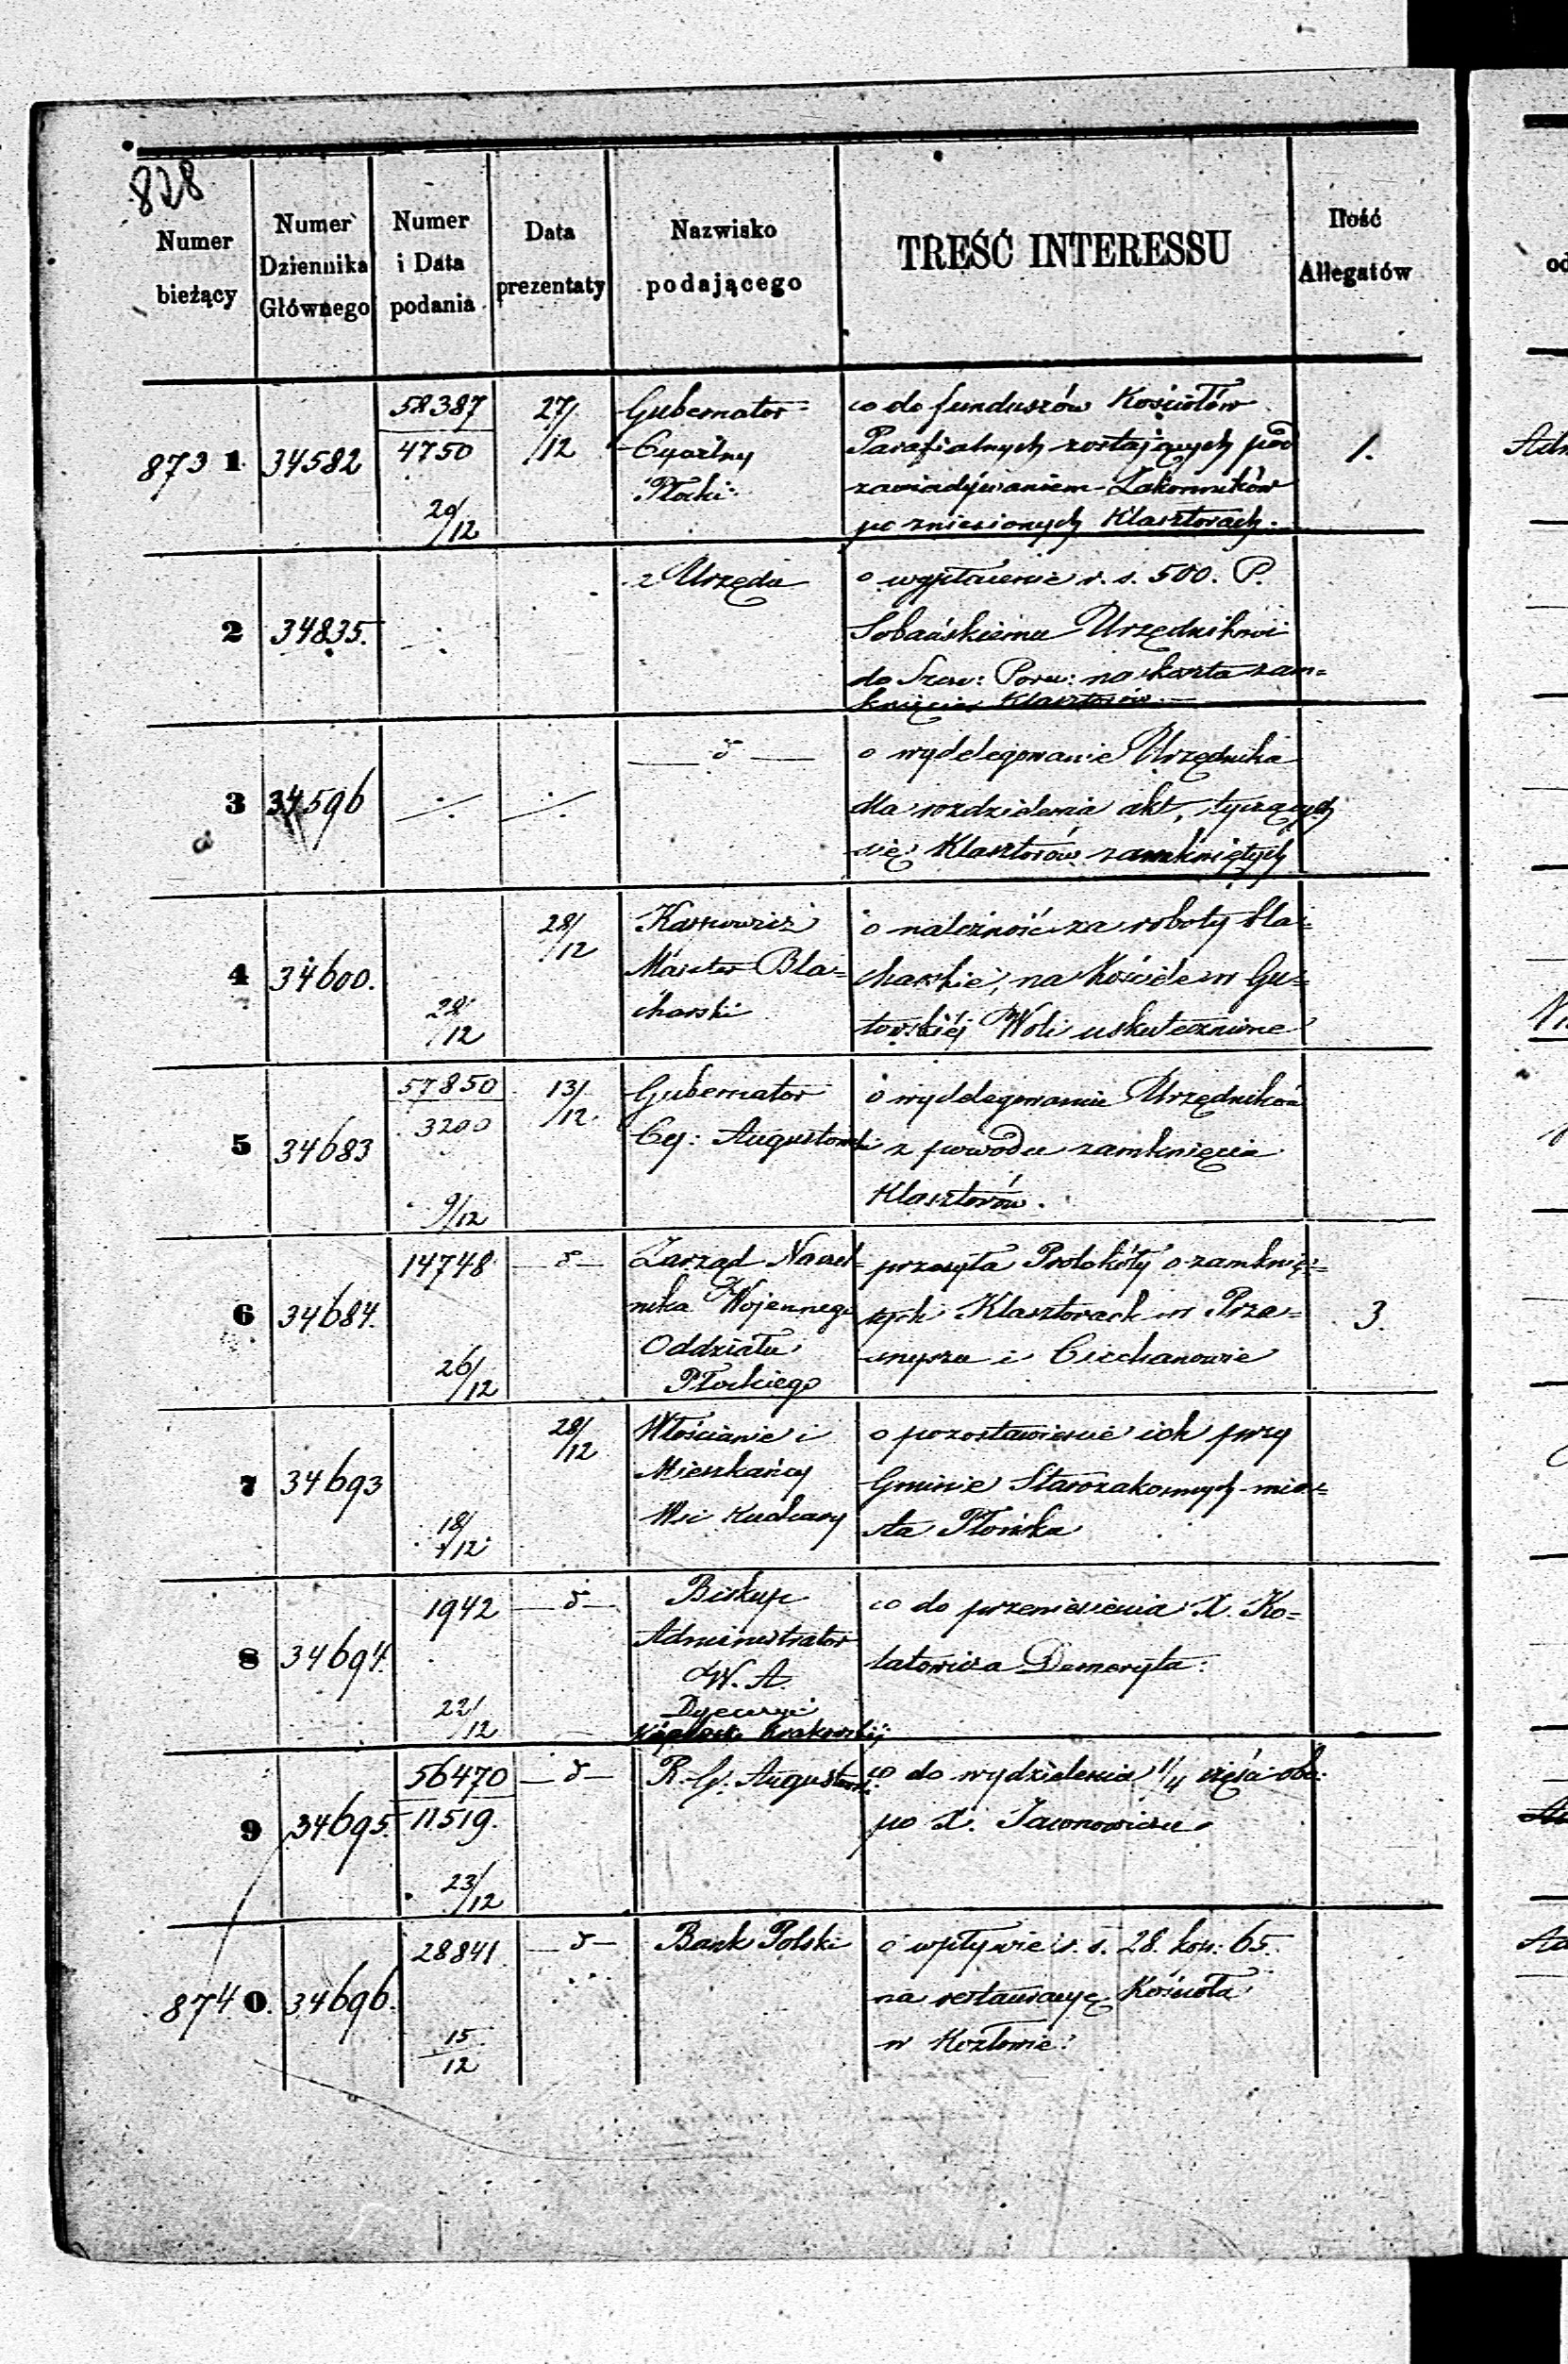 828
Numer bieżący
Numer Dziennika Głównego
Numer i Data podania
Data prezentaty
Nazwisko podającego
TREŚĆ INTERESSU
Ilość Allegatów
8731 34582 58387 27/12 Gubernator co do funduszów Kościołów
4750 Cywilny Parafialnych zostających pod 1.
Płocki zawiadywaniem Zakonników
29/12 po zniesionych Klasztorach.
2 34835. z Urzędu o wypłacenie r. s. 500. P.
Sobańskiemu Urzędnikowi
do Szcz: Poru: na koszta zam=
knięcia Klasztorów.
3 34596 o wydelegowanie Urzędnika
dla rozdzielenia akt, tyczących
się Klasztorów zamkniętych
4 34600. 28/12 28/12 o należność za roboty bla=
Majster Bla= charskie, na Kościele w Gu=
charski towskiéj Woli uskutecznione
5 34683 57850 13/12 Gubernator o wydelegowanie Urzędników
3200 Cy: Augustowski z powodu zamknięcia
9/12 Klasztorów.
6 34684. 14748 Zarząd Naczel= przesyła Protokóły o zamknię=
nika Wojennego tych Klasztorach w Prza= 3.
Oddziału snyszu i Ciechanowie
26/12 Płockiego
7 34693 28/12 Włościanie i o pozostawienie ich przy
Mieszkańcy Gminie Starozakonnych mia=
18/12 Wsi Kuchary sta Płońska
8 34694. 1942 Biskup co do przeniesienia X. Ko=
Administrator łatowicza Demeryta.
W. A.
22/12 Dyecezyi
Krakowskiéj
9 34695. 56470 R. G. Augustows. co do wydzielenia 1/4 części
11519. po X. Jawonowiczu
23/12
8740. 34696. 28841 Bank Polski o wpływie r. s. 28. kop. 65.
na restauracyę Kościoła
15/12 w Kozłowie.